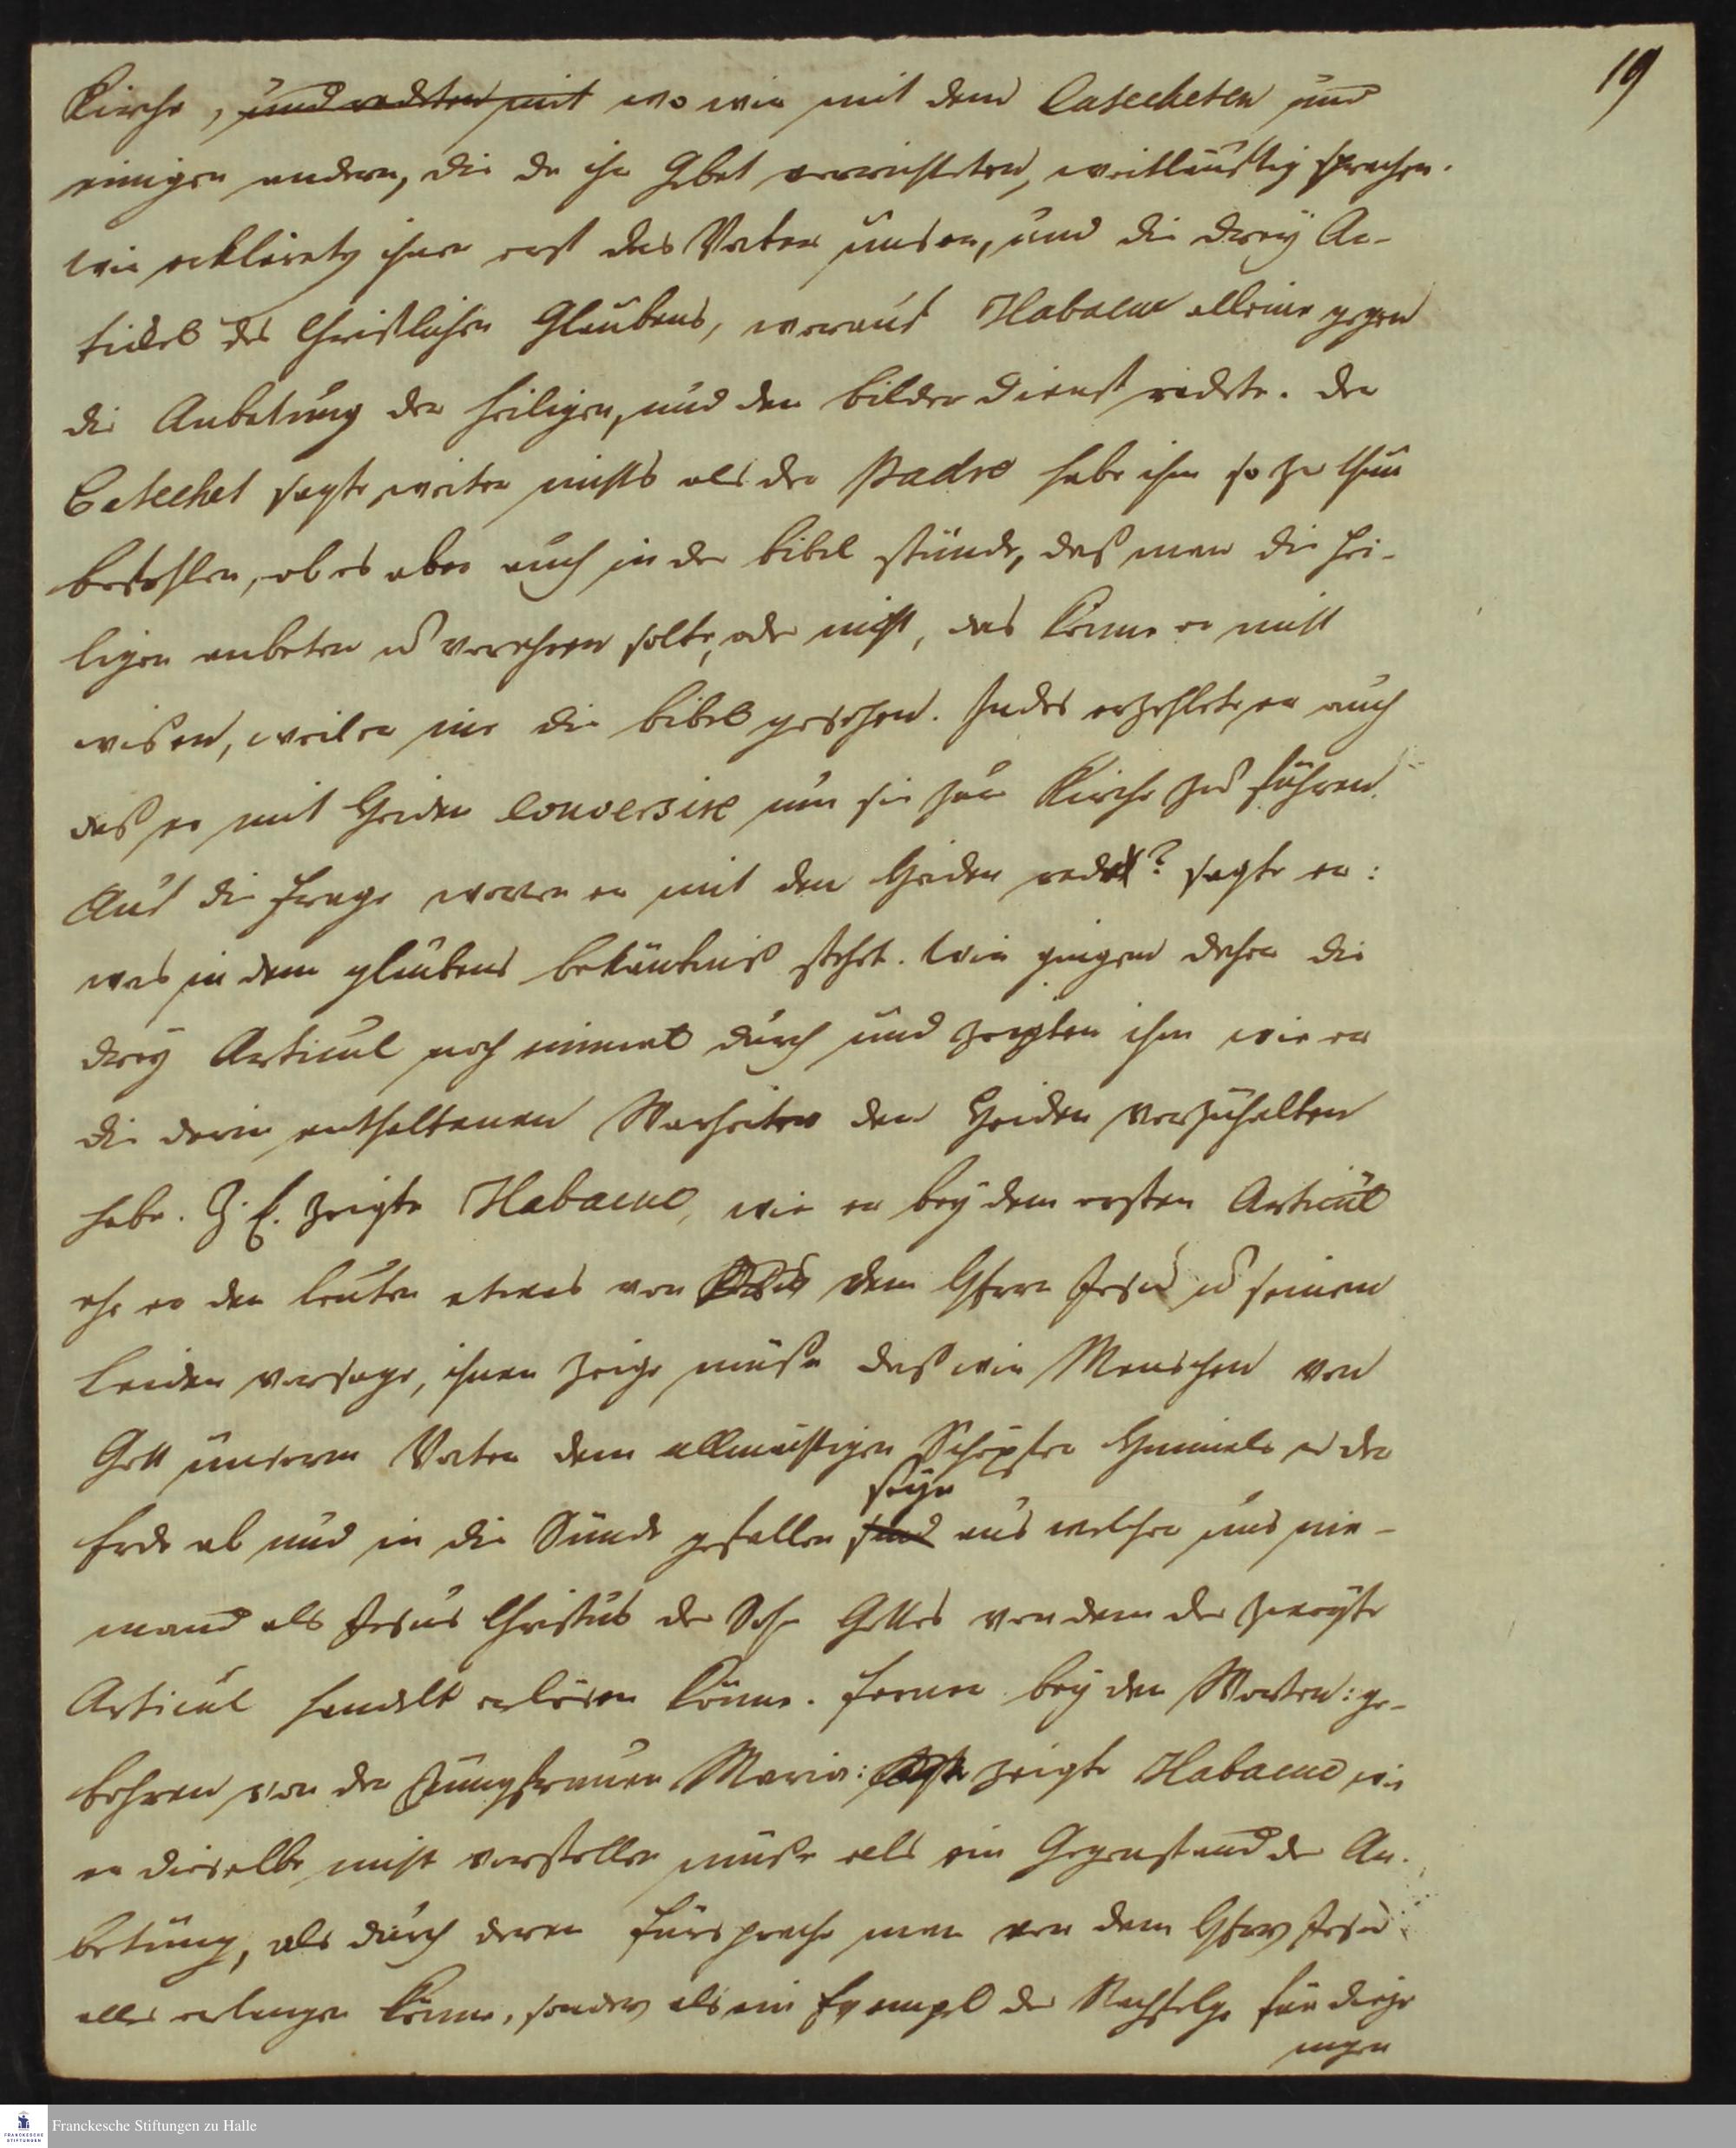 19
Kirche, und redeten mit wo wir mit dem Catecheten und
einigen andern, die da ihr Gebet verrichteten, weitläuftig sprachen.
Wir erklärten ihnen erst das Vater unser, und die drey Ar-
tickel des Christlichen Glaubens, worauf Habacuc alleine gegen
die Anbetung der Heiligen, und den bilder dienst redete. Der
Catechet sagte weiter nichts als der Padre habe ihm so zu thun
befohlen, ob es aber auch in der bibel stünde, daß man die Hei-
ligen anbeten u verehren solte, oder nicht, das könne er nicht
wißen, weil er nie die bibel gesehen. Indes erzehlete er auch
daß er mit Heiden conversire um sie zur Kirche zu führen.
Auf die Frage wovon er mit den Heiden rede? sagte er:
was in dem glaubens bekäntniß stehet. Wir gingen daher die
drey Articul noch einmal durch und zeigten ihm wie er
die darin enthaltenen Warheiten den Heiden vorzuhalten
habe. Z. E. zeigte Habacuc, wie er bey dem ersten Articul
ehe er den leuten etwas von dem Herrn Jesu u seinem
Leiden vorsage, ihnen zeige müße daß wir Menschen von
Gott unserm Vater dem allmächtigen Schöpfer Himmels u der
seyn
Erde ab und in die Sünde gefallen sind aus welcher uns nie-
mand als Jesus Christus der Sohn Gottes von dem der zweyte
Articul handelt erlösen könne. Ferner bey den Worten: ge-
bohren von der Jungfrauen Maria: sagte zeigte Habacuc wie
er dieselbe nicht vorstellen müße als ein Gegenstand der An-
betung, als durch deren Fürsprache man von dem Herrn Jesu
alles erlangen könne, sondern als ein Exempel der Nachfolge für dieje
nigen
Franckesche Stiftungen zu Halle
FRANCKESCHE
STIFTUNGEN